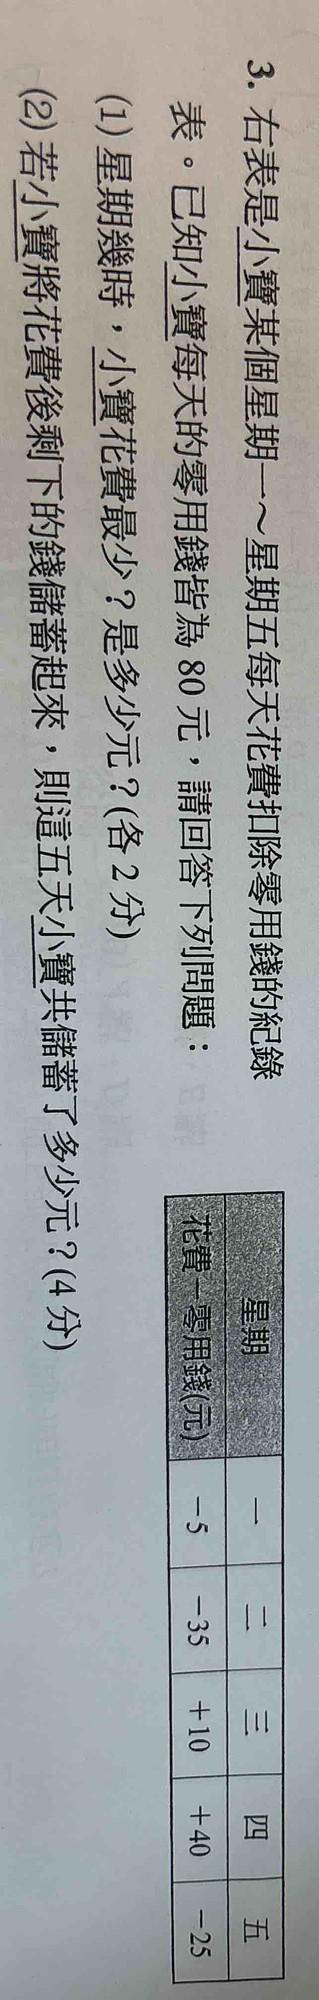 3. 右表是小寶某個星期一～星期五每天花費扣除零用錢的紀錄
表。已知小寶每天的零用錢皆為 80 元，請回答下列問題：
(1) 星期幾時，小寶花費最少？是多少元？(各 2 分)
(2) 若小寶將花費後剩下的錢儲蓄起來，則這五天小寶共儲蓄了多少元？(4 分)
星期 一 二 三 四 五
花費－零用錢(元) －5 －35 ＋10 ＋40 －25